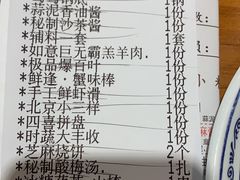 *蒜泥香油酱 1份
*秘制沙茶酱 1份
*辅料一套 1套
*如意巨无霸羔羊肉. 1份
*极品爆百叶 1份
*鲜逢·蟹味棒 1份
*手工鲜虾滑 1份
*北京小三样 1份
*四喜拼盘 1份
*时蔬大丰收 1份
*芝麻烧饼 2个
*秘制酸梅汤, 1扎